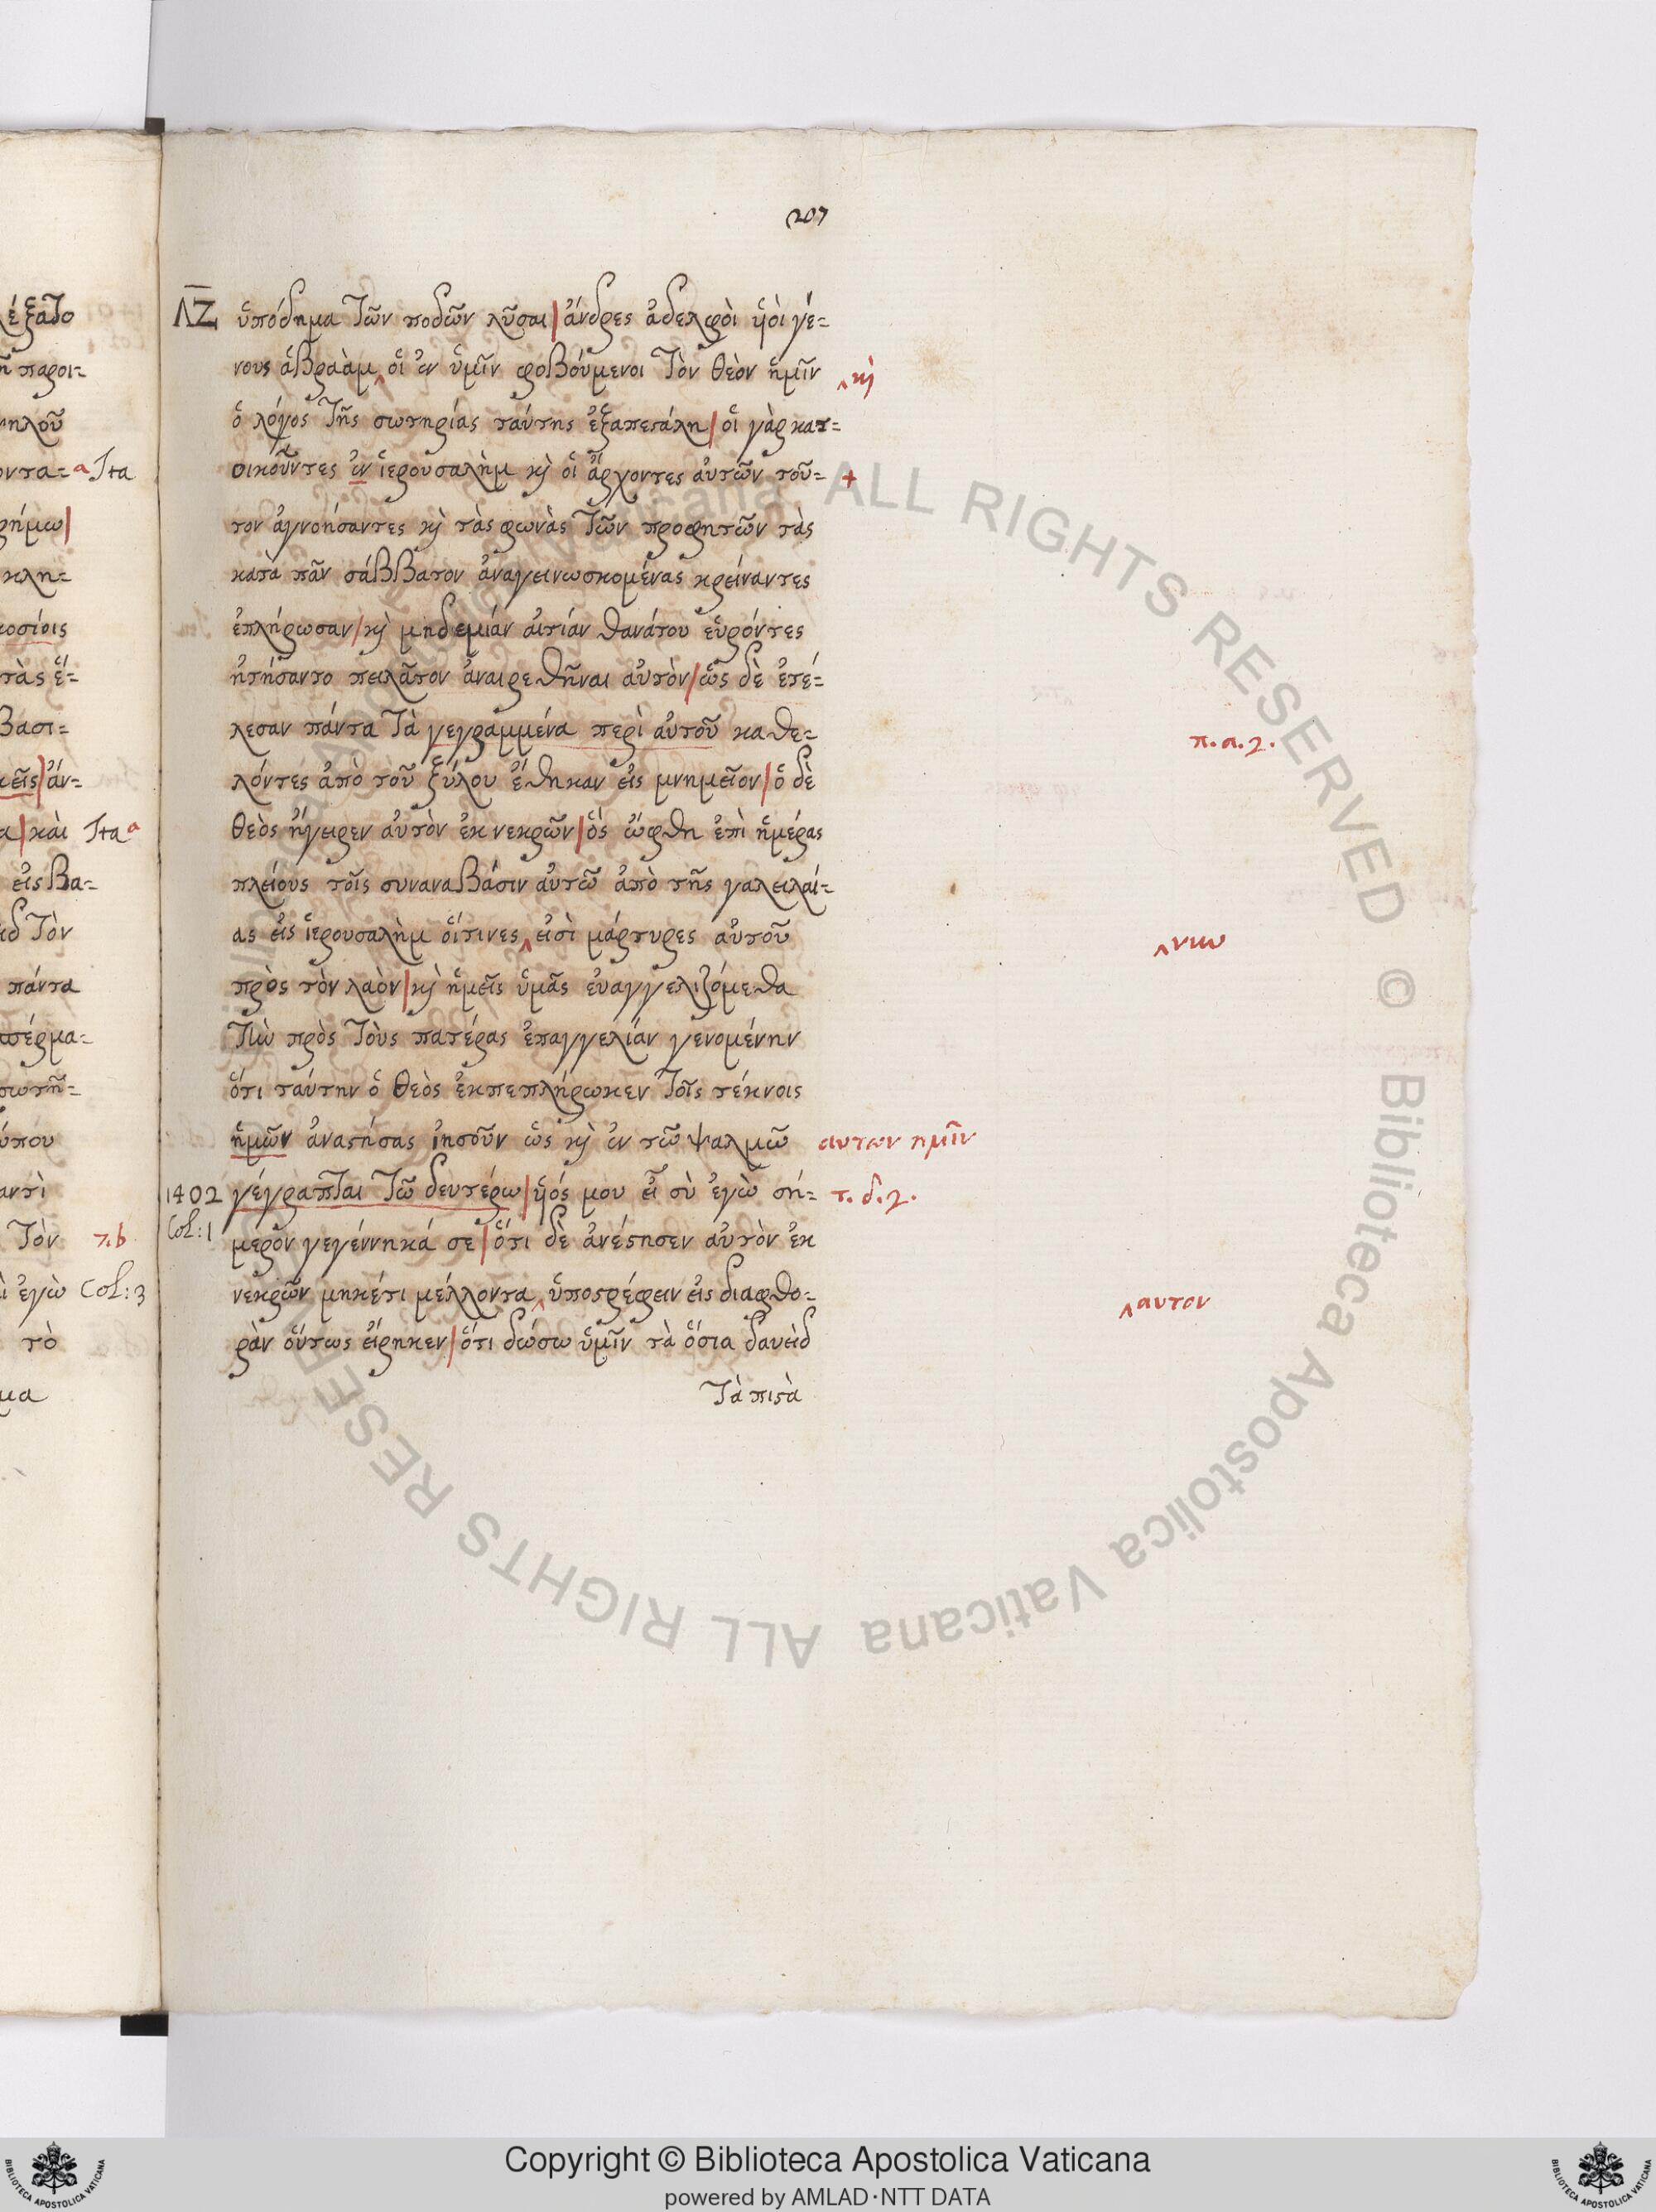 207
ΛΖ ὑπόδημα τῶν ποδῶν λῦσαι | ἄνδρες ἀδελφὸι ὑὸι γέ=
νους ἀβραὰμ ‸ ὁὶ ἐν ὑμῖν φοβόυμενοι τὸν θεὸν ἡμῖν ‸ κὶ
ὁ λόγος τῆς σωτηρίας ταύτης ἐξαπεστάλη | ὁὶ γὰρ κατ=
οικοῦντες ἐν ἱερουσαλὴμ κὶ ὁι ἄρχοντες ἀυτῶν τοῦ= +
τον ἀγνοήσαντες κὶ τὰς φωνὰς τῶν προφητῶν τὰς
κατὰ πᾶν σάββατον ἀναγεινωσκομένας κρείναντες
ἐπλήρωσαν | κὶ μηδεμιάν ἀιτιάν θανάτου ἑυρόντες
ἠτήσαντο πειλᾶτον ἀναιρεθῆναι ἀυτὸν | ὡς δὲ ἐτέ=
λεσαν πάντα τὰ γεγραμμένα περὶ ἀυτοῦ καθε= π. α. 2.
λόντες ἀπὸ τοῦ ξύλου ἔθηκαν ἐις μνημεῖον | ὁ δὲ
θεὸς ἤγειρεν ἀυτὸν ἐκ νεκρῶν | ὅς ὤφθη ἐπὶ ἡμέρας
πλείους τοῖς συναναβάσιν ἀυτῶ ἀπὸ τῆς γαλειλαί=
ας ἐις ἱερουσαλὴμ ὅιτινες ‸ ἐισὶ μάρτυρες ἀυτοῦ ‸ νιω
πρὸς τὸν λαὸν | κὶ ἡμεῖς ὑμᾶς ἐυαγγελιζόμεθα
τιὼ πρὸς τὸυς πατέρας ἐπαγγελίαν γενομένην
ὅτι ταύτην ὁ θεὸς ἐκπεπλήρωκεν τοῖς τέκνοις
ἡμῶν ἀναστήσας ἰησοῦν ὡς κὶ ἐν τῶ ψαλμῶ αυτων ημῖν
1402 γέγραπται τῶ δευτέρω | ὑός μου εἶ σὺ ἐγὼ σή= τ. δ. 2.
Col: 1 μερον γεγέννηκά σε | ὅτι δὲ ἀνέστησεν ἀυτὸν ἐκ
νεκρῶν μηκέτι μέλλοντα ‸ ὑποστρέφειν ἐις διαφθο= ‸ αυτον
ρὰν ὅυτως ἔιρηκεν | ὅτι δώσω ὑμῖν τὰ ὅσια δαυεὶδ
τὰ πιστὰ
Copyright © Biblioteca Apostolica Vaticana
powered by AMLAD·NTT DATA